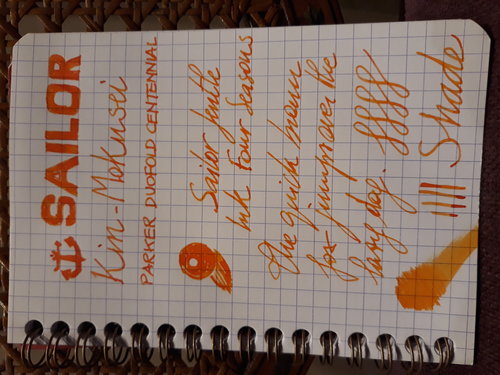 SAILOR
Kin-Mokusei
PARKER DUOFOLD CENTENNIAL
Sailor Jentle
Ink Four Seasons
the quick brown
fox jumps over the
lazy dog.
Shade